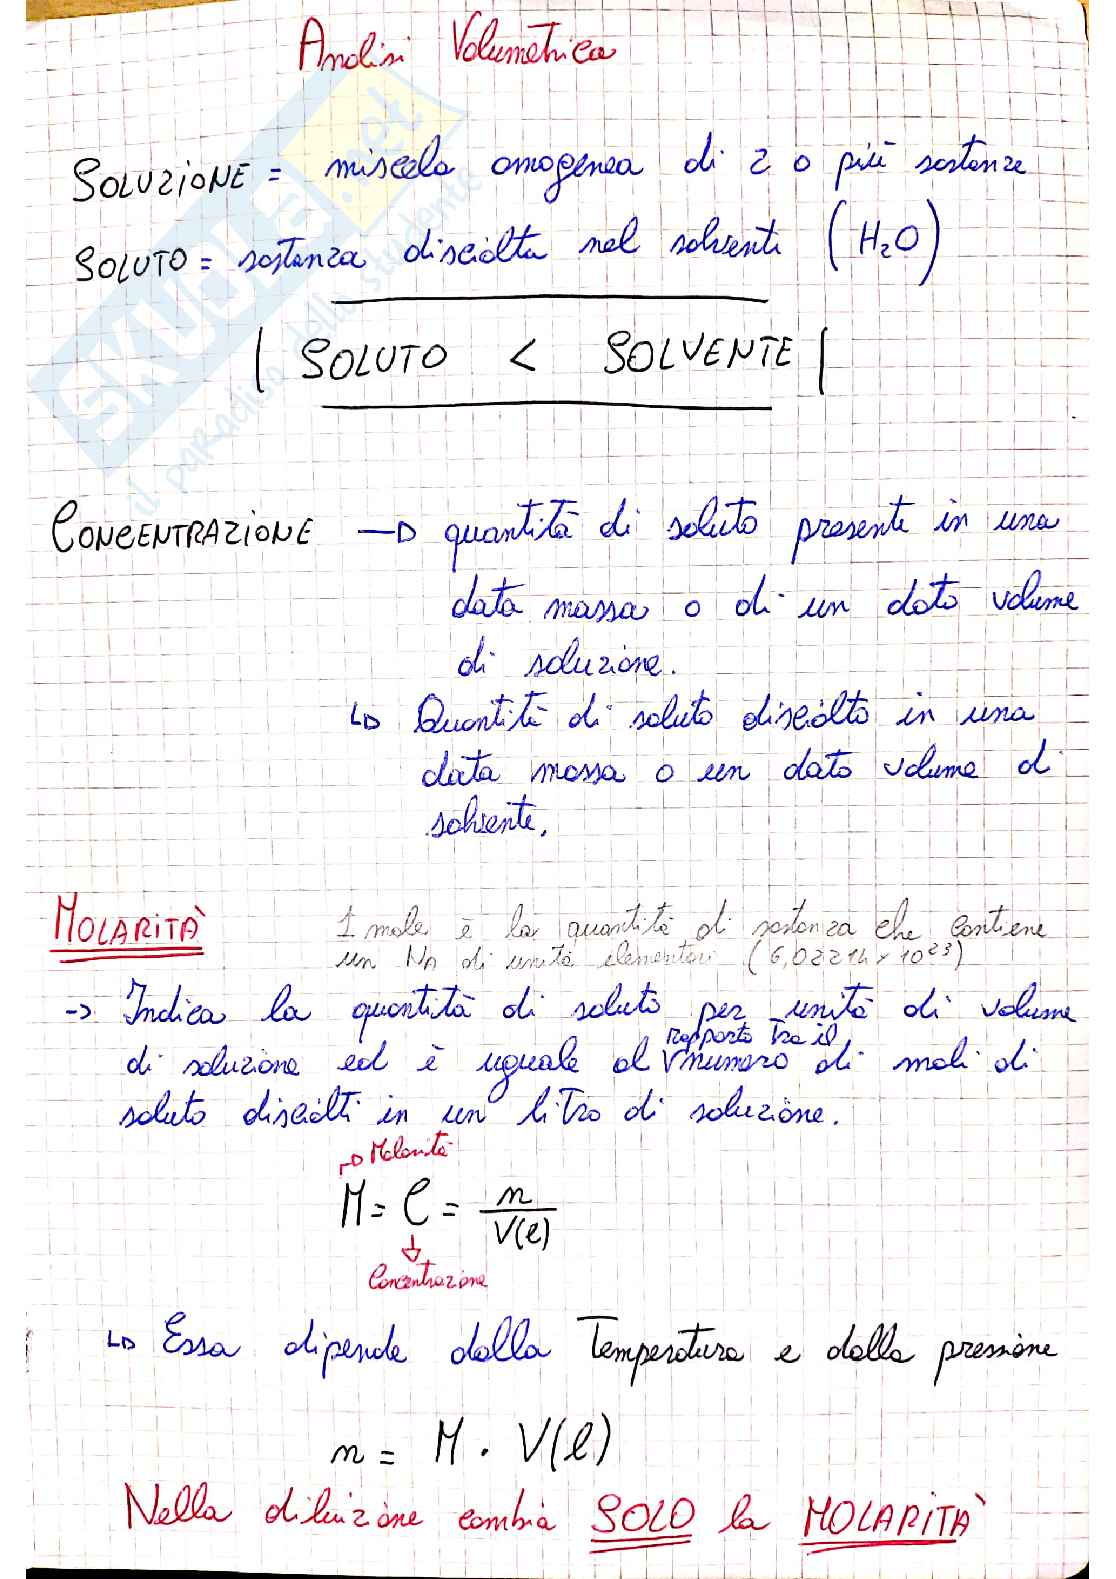 Analisi Volumetrica
SOLUZIONE = miscela omogenea di 2 o più sostanze
SOLUTO = sostanza disciolta nel solvente (H₂O)
| SOLUTO < SOLVENTE |
CONCENTRAZIONE —▷ quantità di soluto presente in una
data massa o di un dato volume
di soluzione.
↳ Quantità di soluto disciolto in una
data massa o un dato volume di
solvente.
MOLARITÀ
1 mole è la quantità di sostanza che contiene
un NA di unità elementari (6,02214 x 10²³)
-> Indica la quantità di soluto per unità di volume
di soluzione ed è uguale al rapporto tra il numero di moli di
soluto disciolti in un litro di soluzione.
Molarità
M = C = n / V(l)
Concentrazione
↳ Essa dipende dalla Temperatura e dalla pressione
n = M · V(l)
Nella diluizione cambia SOLO la MOLARITÀ
SKUOLA.net
il paradiso dello studente